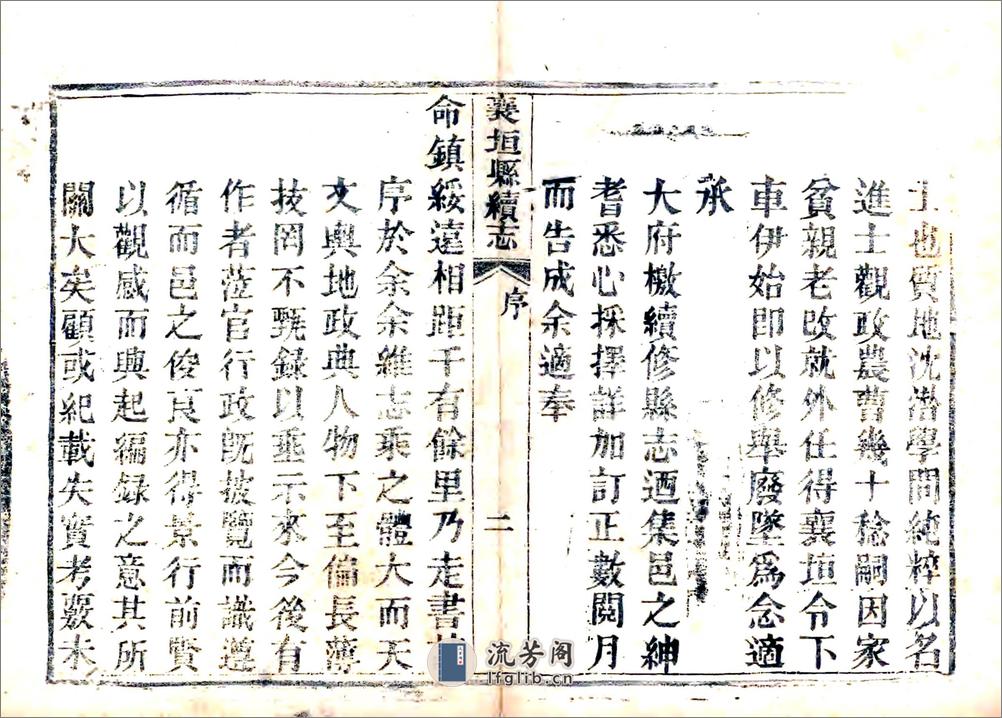 士也質地沈潛學問純粹以名
進士觀政農曹幾十稔嗣因家
貧親老改就外任得襄垣令下
車伊始即以修舉廢墜爲念適
承
大府檄續修縣志迺集邑之紳
耆悉心採擇詳加訂正數閱月
而告成余適奉
襄垣縣續志
序
二
命鎮綏遠相距千有餘里乃走書
序於余余維志乘之體大而天
文輿地政典人物下至偏長薄
技罔不甄錄以垂示來今後有
作者蒞官行政旣披覽而識遵
循而邑之俊良亦得景行前賢
以觀感而興起編録之意其所
關大矣顧或紀載失實考覈未
流芳阁
lfglib.cn